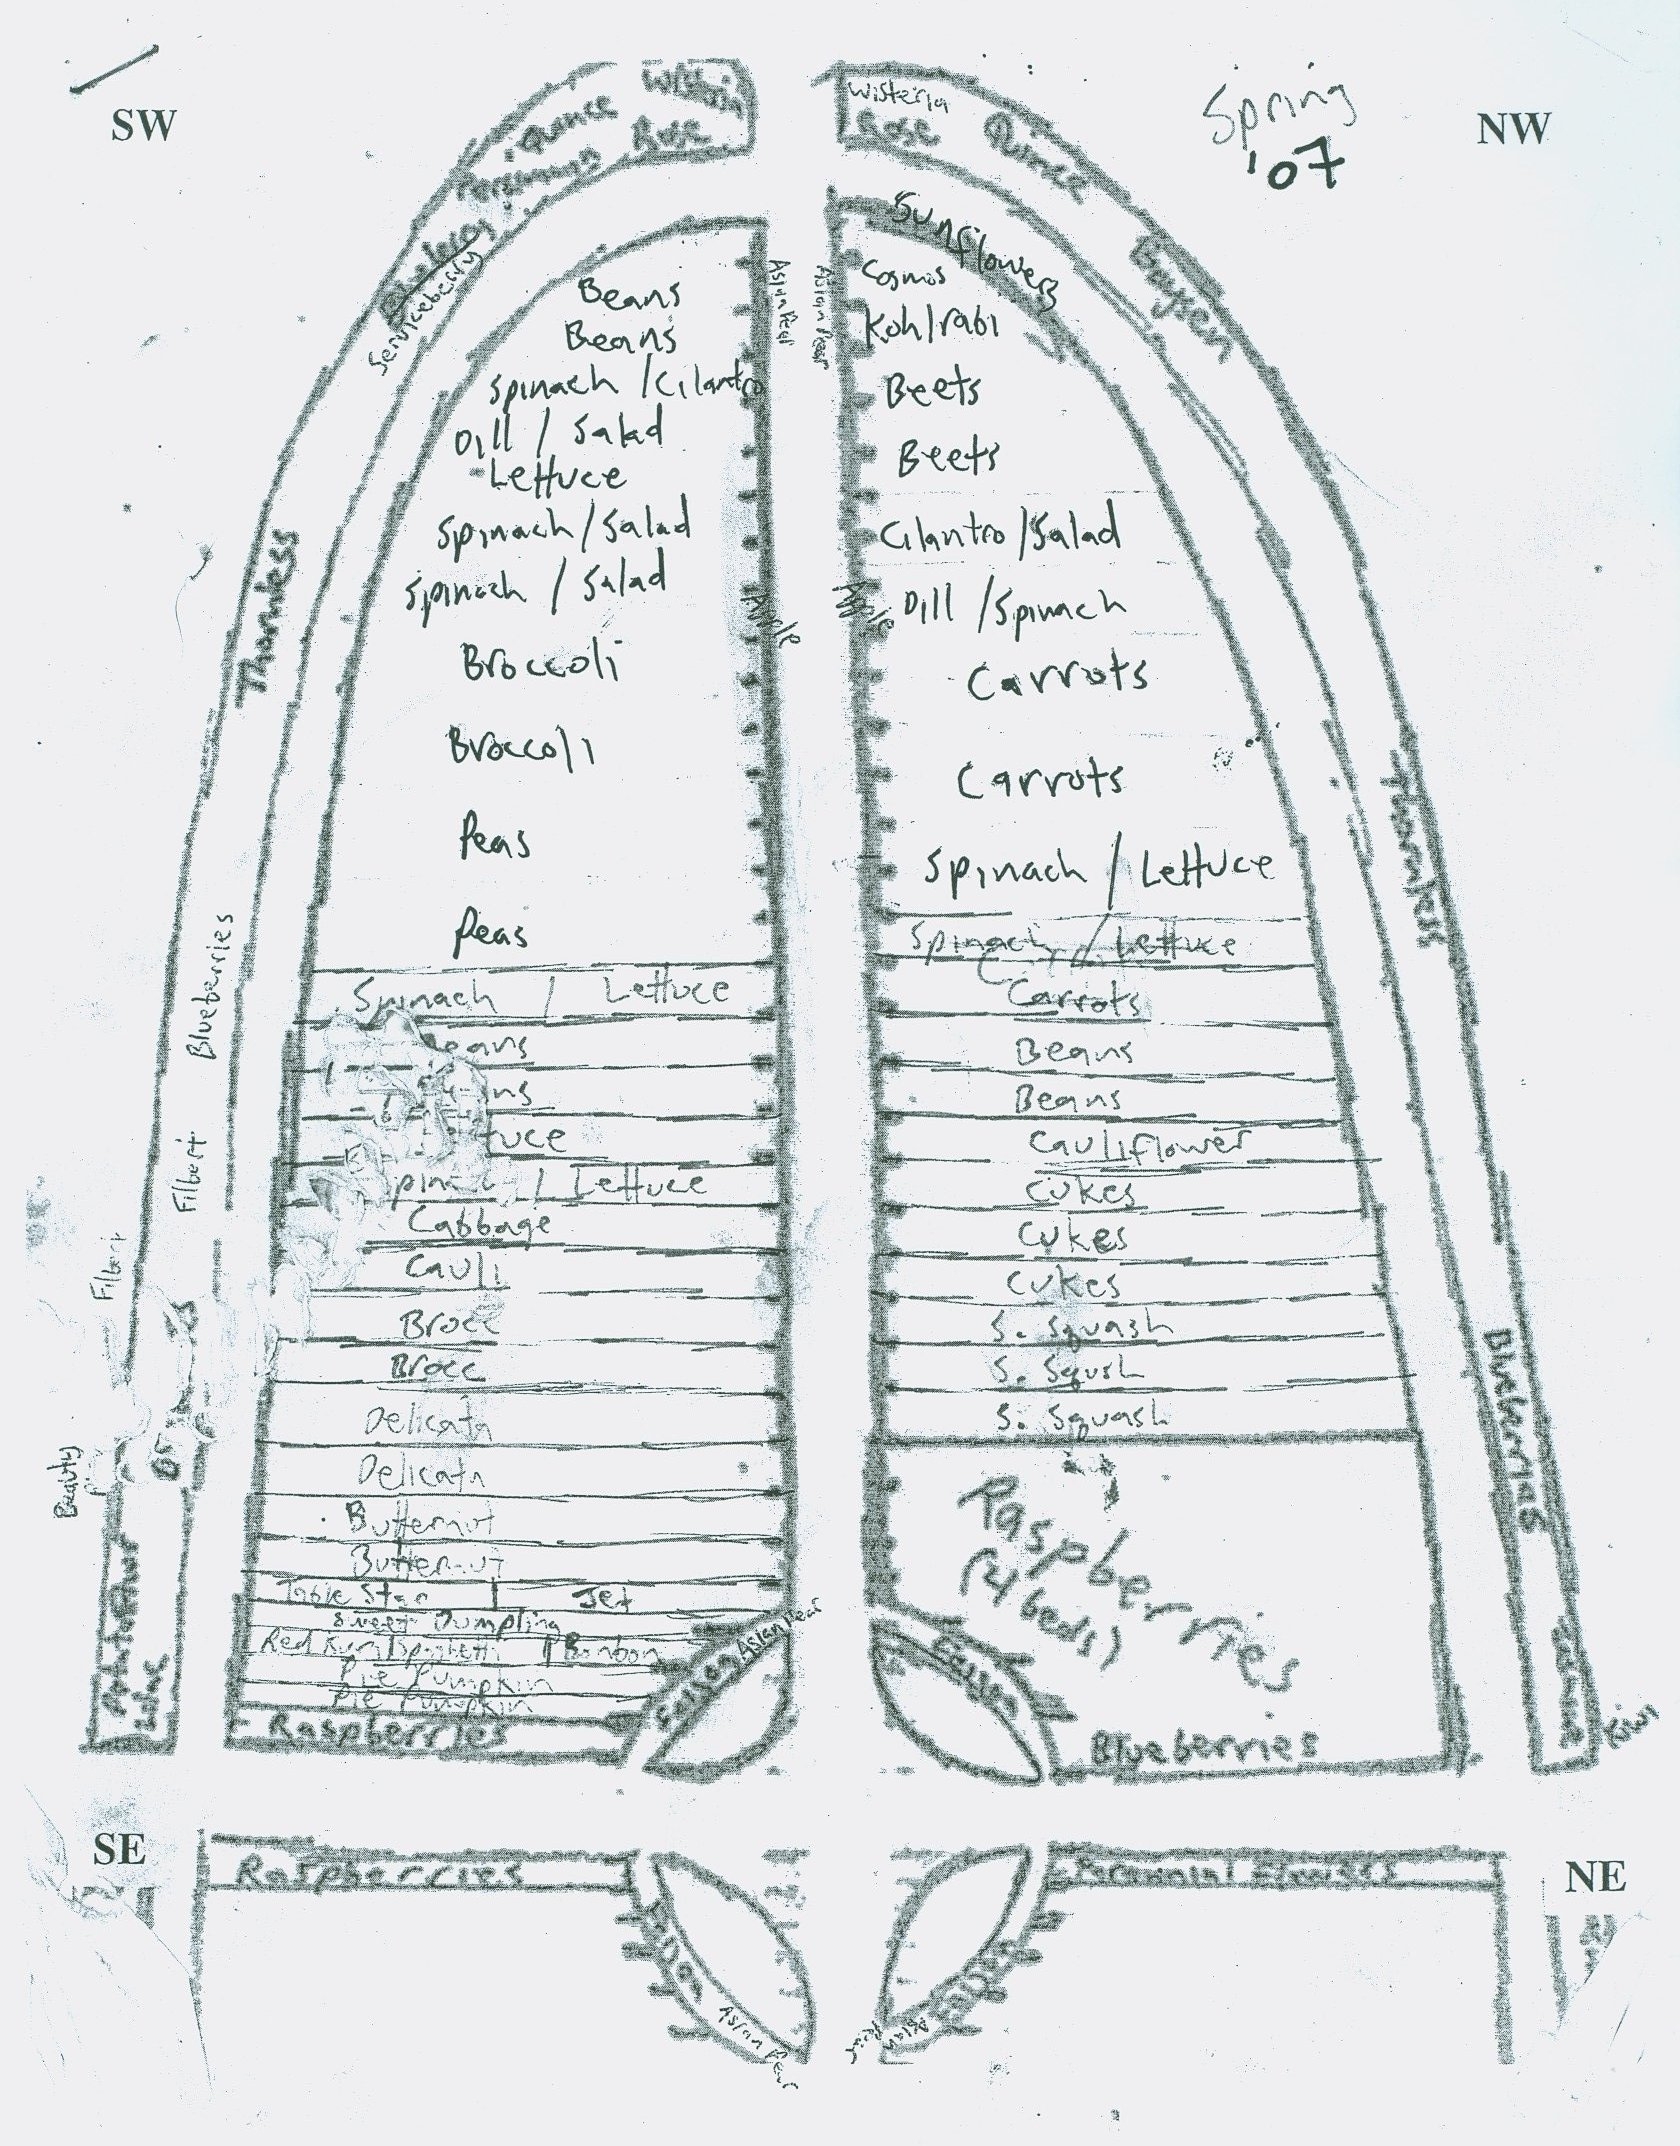 SW
NW
Spring
'07
Wisteria
Quince
Rose
Persimmons
Serviceberry
Thornless
Blueberries
Filbert
Filbert
Beauty
Wisteria
Rose
Quince
Boysen
Thornless
Blueberries
Kiwi
Beans
Beans
Spinach / Cilantro
Dill / Salad
Lettuce
Spinach / Salad
Spinach / Salad
Broccoli
Broccoli
Peas
Peas
Spinach / Lettuce
Cabbage
Cauli
Brocc
Brocc
Delicata
Delicata
Butternut
Butternut
Table Star | Jet
Sweet Dumpling
Red Kuri | Spaghetti | Bonbon
Pie Pumpkin
Pie Pumpkin
Raspberries
Asian Pear
Apple
Asian Pear
Asian Pear
Apple
Sunflowers
Cosmos
Kohlrabi
Beets
Beets
Cilantro / Salad
Dill / Spinach
Carrots
Carrots
Spinach / Lettuce
Spinach / Lettuce
Carrots
Beans
Beans
Cauliflower
Cukes
Cukes
Cukes
S. Squash
S. Sqush
S. Squash
Raspberries
(4 beds)
Blueberries
SE
NE
Raspberries
Perennial
Asian Pear
Asian Pear